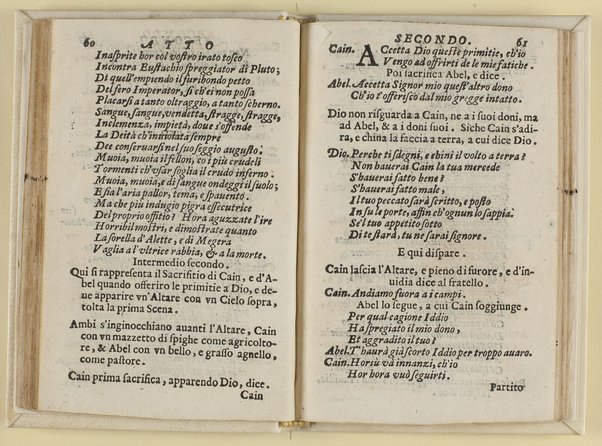 60 ATTO
Inasprite hor col vostro irato tosco
Incontra Eustachio spreggiator di Pluto;
Di quell'empiendo il furibondo petto
Del fero Imperator, sì ch'ei non possa
Placarsi a tanto oltraggio, a tanto scherno.
Sangue, sangue, vendetta, stragge, stragge,
Inclemenza, impietà, doue s'offende
La Deità ch'inuiolata sempre
Dee conseruarsi nel suo seggio augusto.
Muoia, muoia il fellon, co i più crudeli
Tormenti ch'vsar soglia il crudo inferno.
Muoia, muoia, e di sangue ondeggi il suolo;
E sia l'aria pallor, tema, e spauento.
Ma che più indugio pigra essecutrice
Del proprio offitio? Hora aguzzate l'ire
Horribil mostri, e dimostrate quanto
La sorella d'Aletto, e di Megera
Vaglia a l'vltrice rabbia, & a la morte.
Intermedio secondo.
Qui si rappresenta il Sacrifitio di Cain, e d'A-
bel quando offeriro le primitie a Dio, e de-
ue apparire vn'Altare con vn Cielo sopra,
tolta la prima Scena.
Ambi s'inginocchiano auanti l'Altare, Cain
con vn mazzetto di spighe come agricolto-
re, & Abel con vn bello, e grasso agnello,
come pastore.
Cain prima sacrifica, apparendo Dio, dice.
Cain
SECONDO. 61
Cain. ACcetta Dio queste primitie, ch'io
Vengo ad offrirti de le mie fatiche.
Poi sacrifica Abel, e dice.
Abel. Accetta Signor mio quest'altro dono
Ch'io t'offerisco dal mio gregge intatto.
Dio non risguarda a Cain, ne a i suoi doni, ma
ad Abel, & a i doni suoi. Siche Cain s'adi-
ra, e china la faccia a terra, a cui dice Dio.
Dio. Perche ti sdegni, e chini il volto a terra?
Non hauerai Cain la tua mercede
S'hauerai fatto bene?
S'hauerai fatto male,
Il tuo peccato sarà scritto, e posto
In su le porte, affin ch'ognun lo sappia.
Se'l tuo appetito sotto
Di te starà, tu ne sarai signore.
E qui dispare.
Cain lascia l'Altare, e pieno di furore, e d'in-
uidia dice al fratello.
Cain. Andiamo fuora a i campi.
Abel lo segue, a cui Cain soggiunge.
Per qual cagione Iddio
Ha spregiato il mio dono,
Et aggradito il tuo?
Abel. T'haurà già scorto Iddio per troppo auaro.
Cain. Horiù và innanzi, ch'io
Hor hora vuò seguirti.
Partito